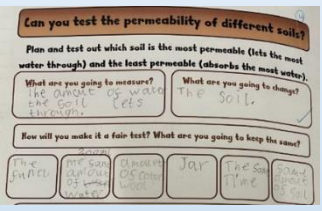 Can you test the permeability of different soils?
Plan and test out which soil is the most permeable (lets the most
water through) and the least permeable (absorbs the most water).
What are you going to measure?
The amount of water
the soil lets
through.
What are you going to change?
The soil.
How will you make it a fair test? What are you going to keep the same?
The
funnel
200ml
the same
amount
of
water
amount
of cotton
wool
Jar
The Same
Time
Same
amount
of soil